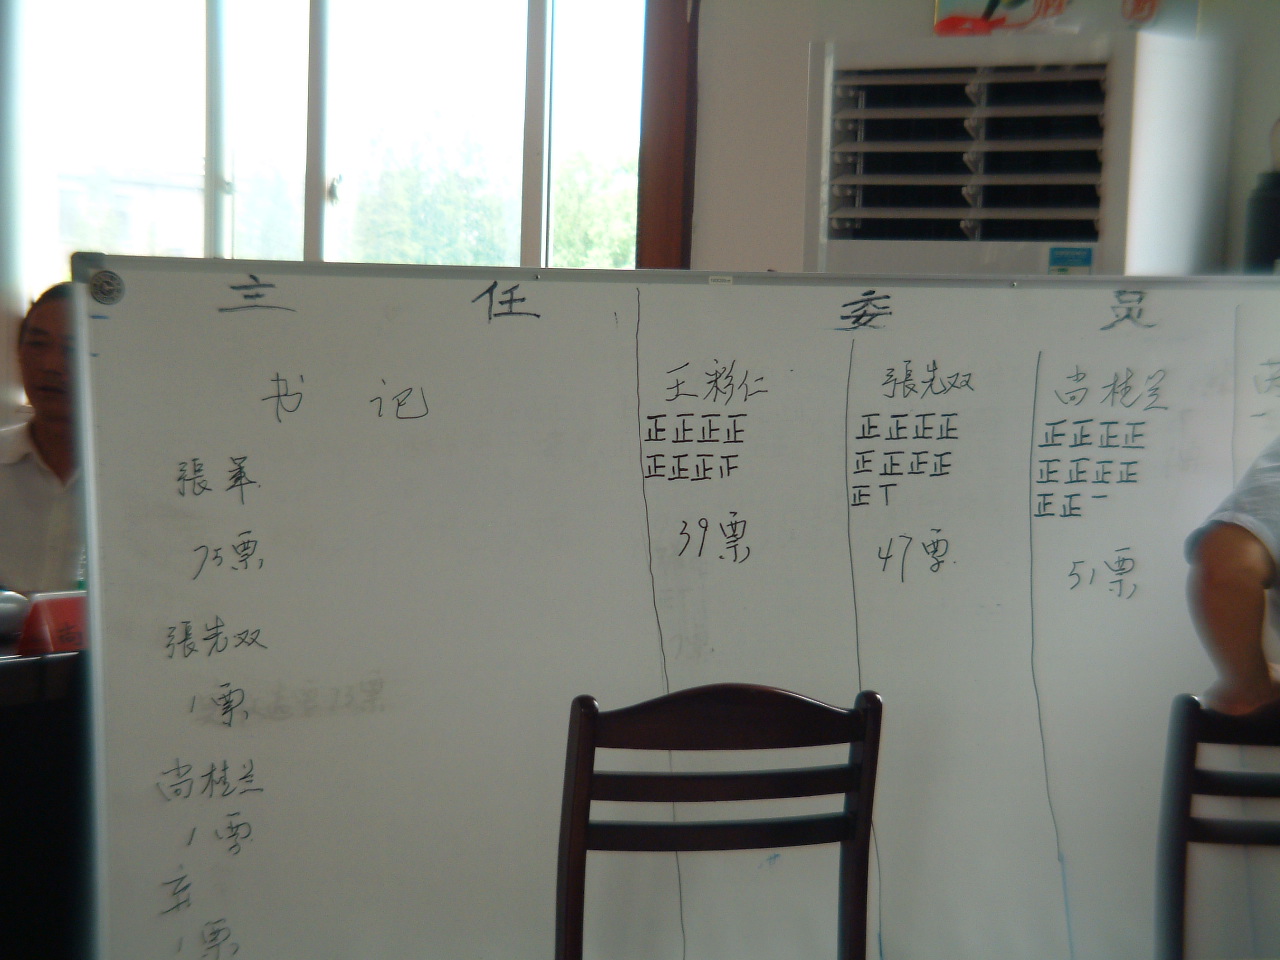 主 任 委 员
书 记
張军
75票
張先双
1票
尚桂兰
1票
1票
王彩仁
正正正正
正正正正
39票
張先双
正正正正
正正正正
正丅
47票
尚桂兰
正正正正
正正正正
正正一
51票